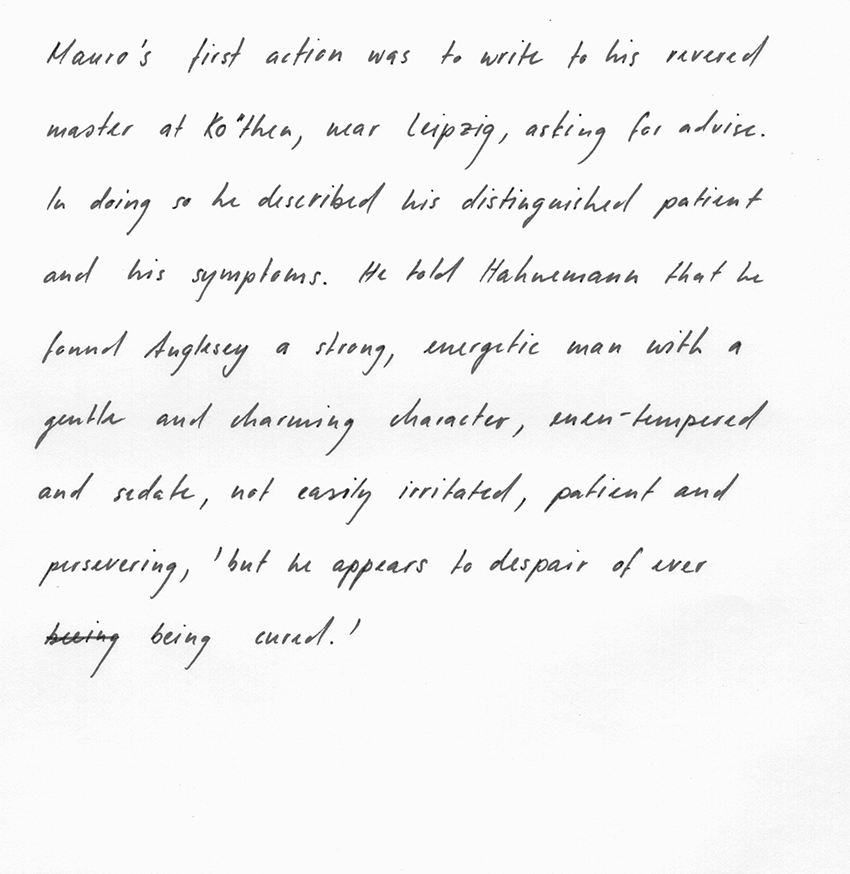 Mauro's first action was to write to his revered
master at Ko"then, near Leipzig, asking for advise.
In doing so he described his distinguished patient
and his symptoms. He told Hahnemann that he
found Anglesey a strong, energetic man with a
gentle and charming character, even-tempered
and sedate, not easily irritated, patient and
persevering, 'but he appears to despair of ever
beeing being cured.'